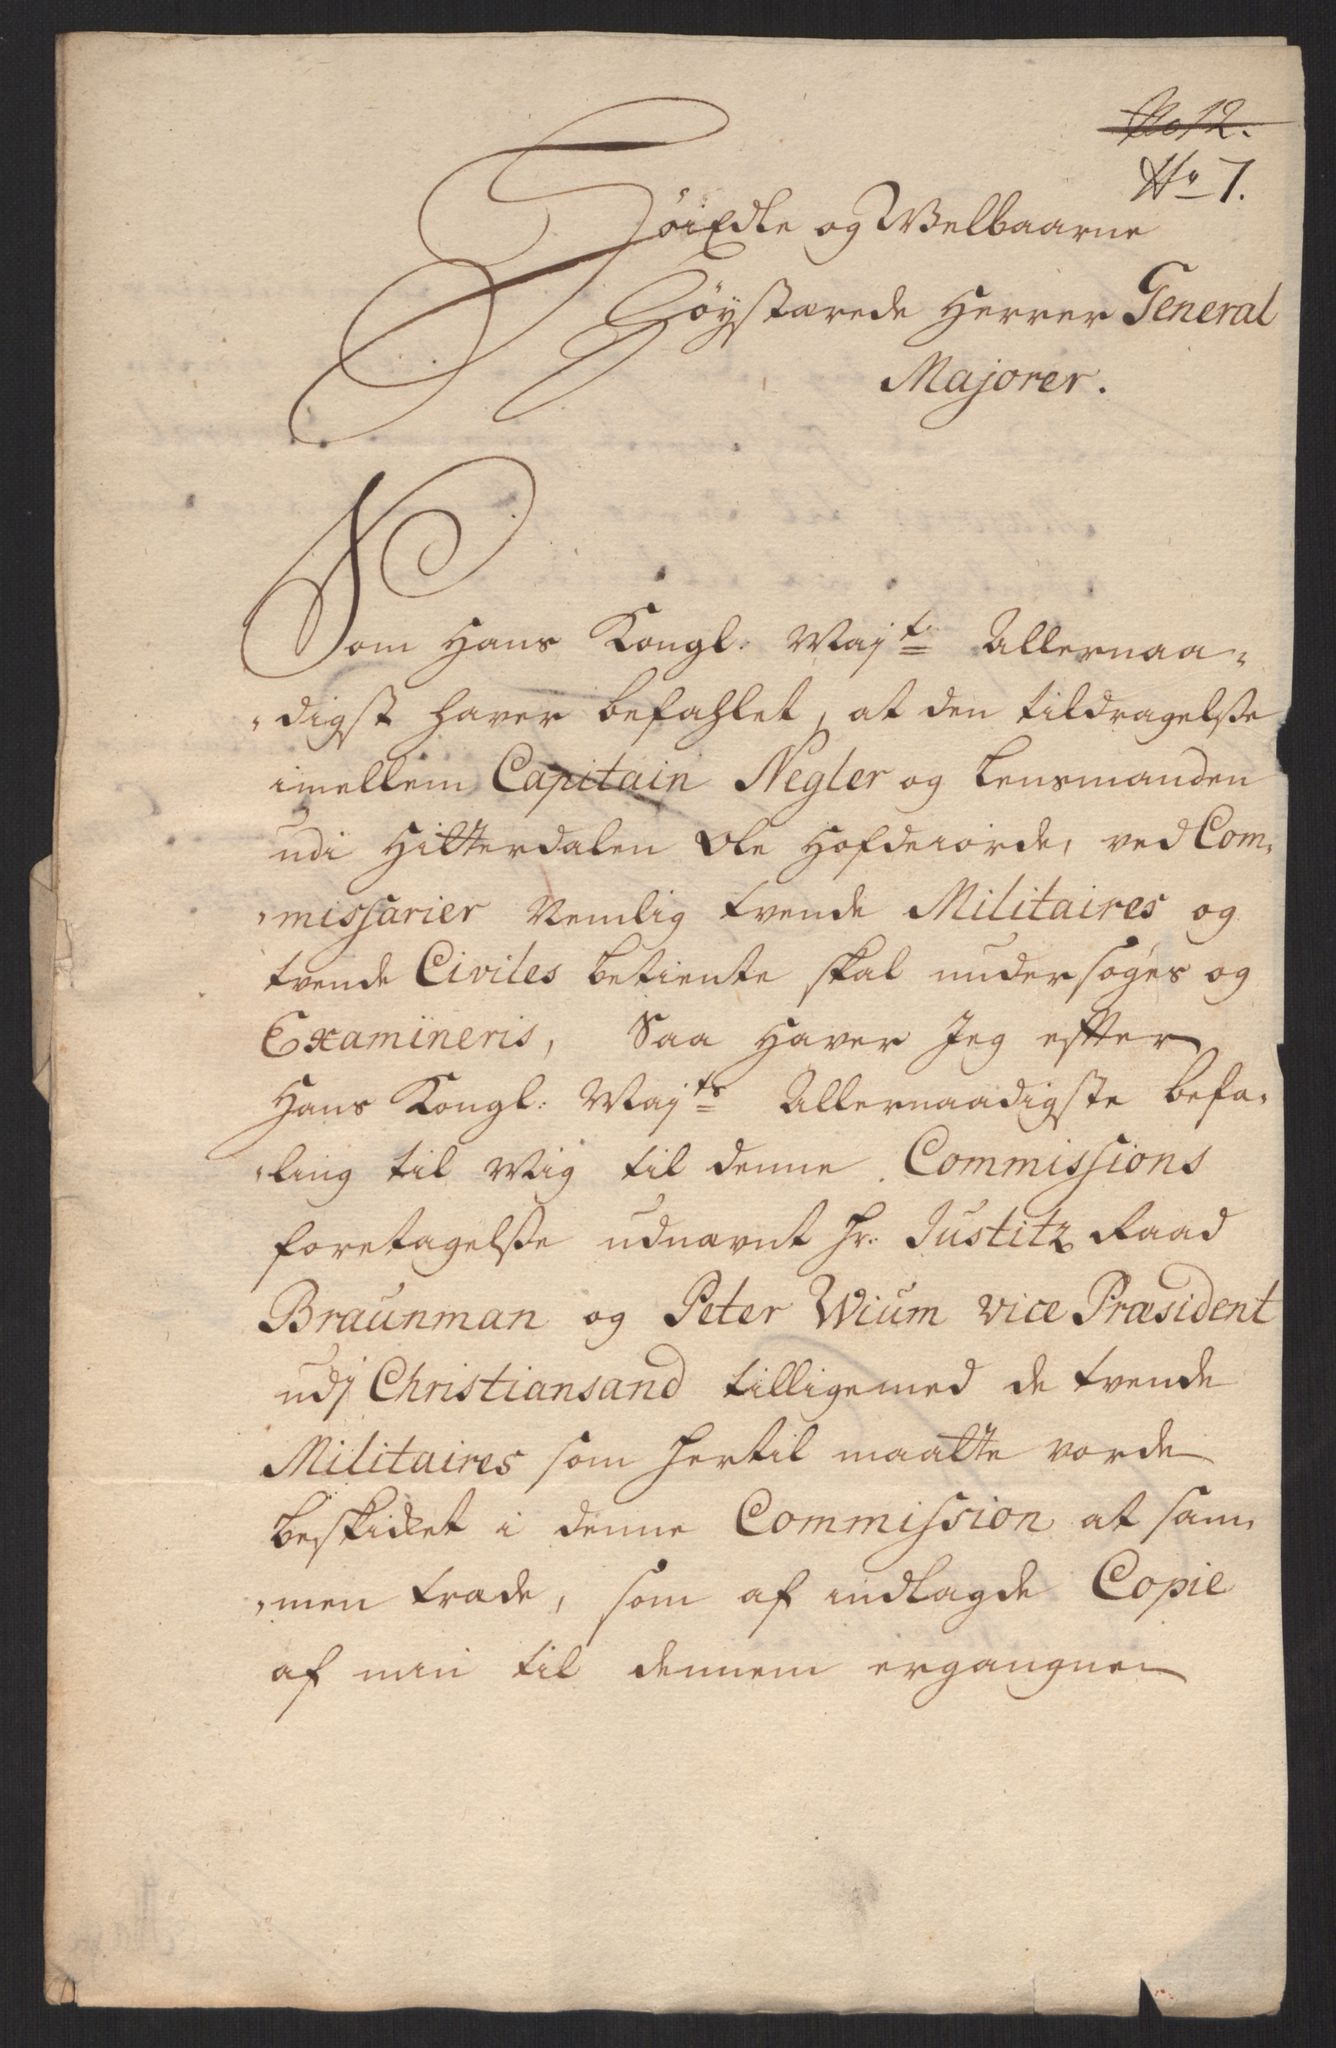 No 12.
No 7.
HöiEdle og Welbaarne
Höystærede Herrer General
Majorer.
Som Hans Kongl: Majt. Allernaa-
-digst haver befahlet, at den tildragelsse
imellem Capitain Negler og Lensmanden
udi Hitterdalen Ole Hofdeiorde, ved Com-
-missarier Nemlig tvende Militaires og
tvende Civiles betiente skal undersöges og
Examineris, Saa haver Jeg efter
Hans Kongl: Majts Allernaadigste befa-
-ling til Mig til denne Commissions
foretagelsse udnævnt Hr: Justitz Raad
Braunman og Peter Wium vice Præsident
udj Christiansand tilligemed de tvende
Militaires som hertil maatte vorde
beskicket i denne Commission at sam-
-men træde, som af indlagde Copie
af min til dennem ergangne